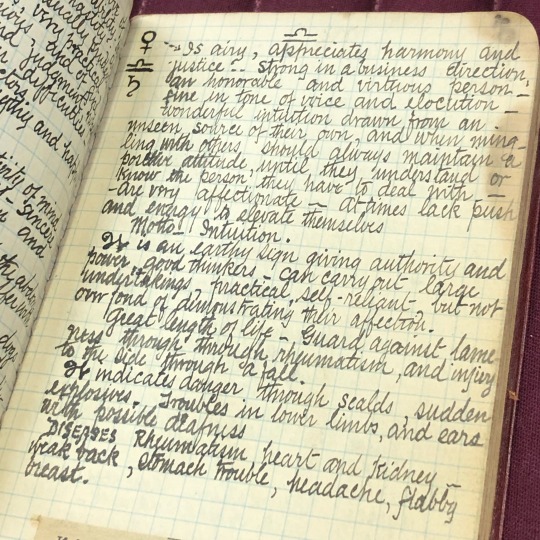 ♎
♀ Is airy, appreciates harmony and
♎ justice - strong in a business direction,
♄ an honorable and virtuous person -
fine in tone of voice and elocution -
wonderful intuition drawn from an
unseen source of their own, and when ming-
ling with others should always maintain a
positive attitude, until they understand or
know the person they have to deal with -
- are very affectionate - At times lack push
and energy to elevate themselves
Motto: Intuition.
It is an earthy sign giving authority and
power, good thinkers - can carry out large
undertakings - practical, self-reliant - but not
over fond of demonstrating their affection.
Great length of life - Guard against lame-
ness through through rheumatism, and injury
to the side through a fall.
It indicates danger through scalds, sudden
explosives. Troubles in lower limbs, and ears
with possible deafness
DISEASES Rheumatism, heart and kidney -
weak back, stomach trouble, headache, flabby
breast.